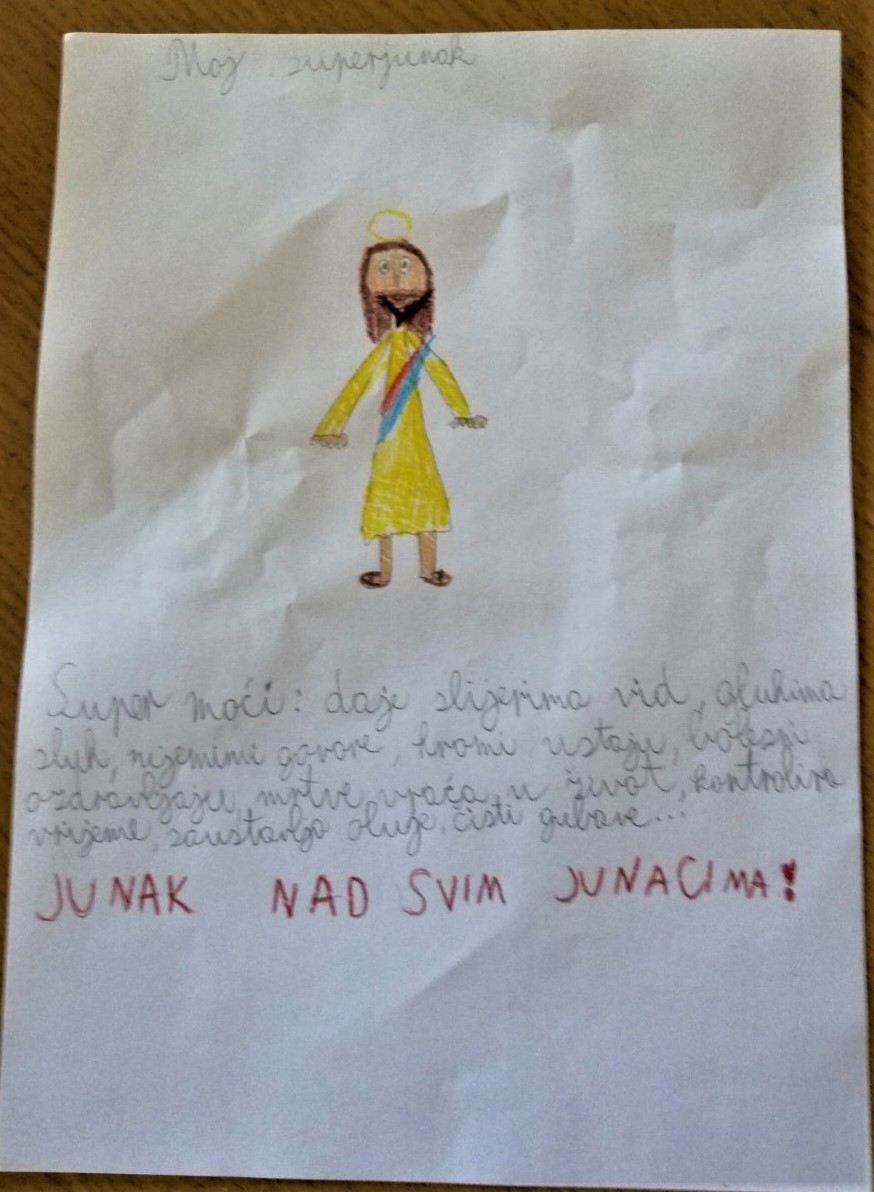 Moj superjunak
Super moći: daje slijepima vid, gluhima
sluh, nijemimi govore, hromi ustaju, bolesni
ozdravljaju, mrtve vraća u život, kontrolira
vrijeme, zaustavlja oluje, čisti gubave...
JUNAK NAD SVIM JUNACIMA!